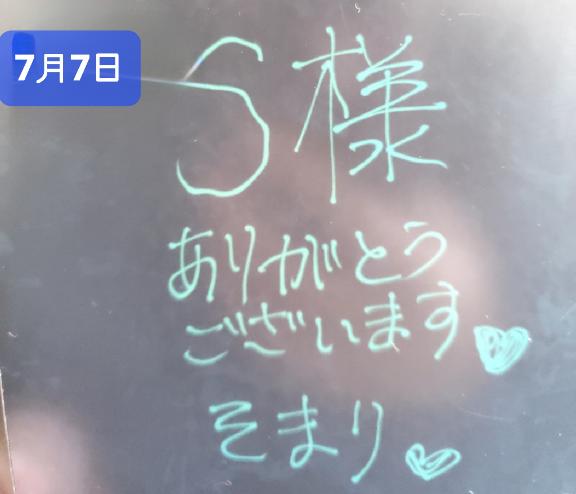 7月7日
S様
ありがとう
ございます
そまり